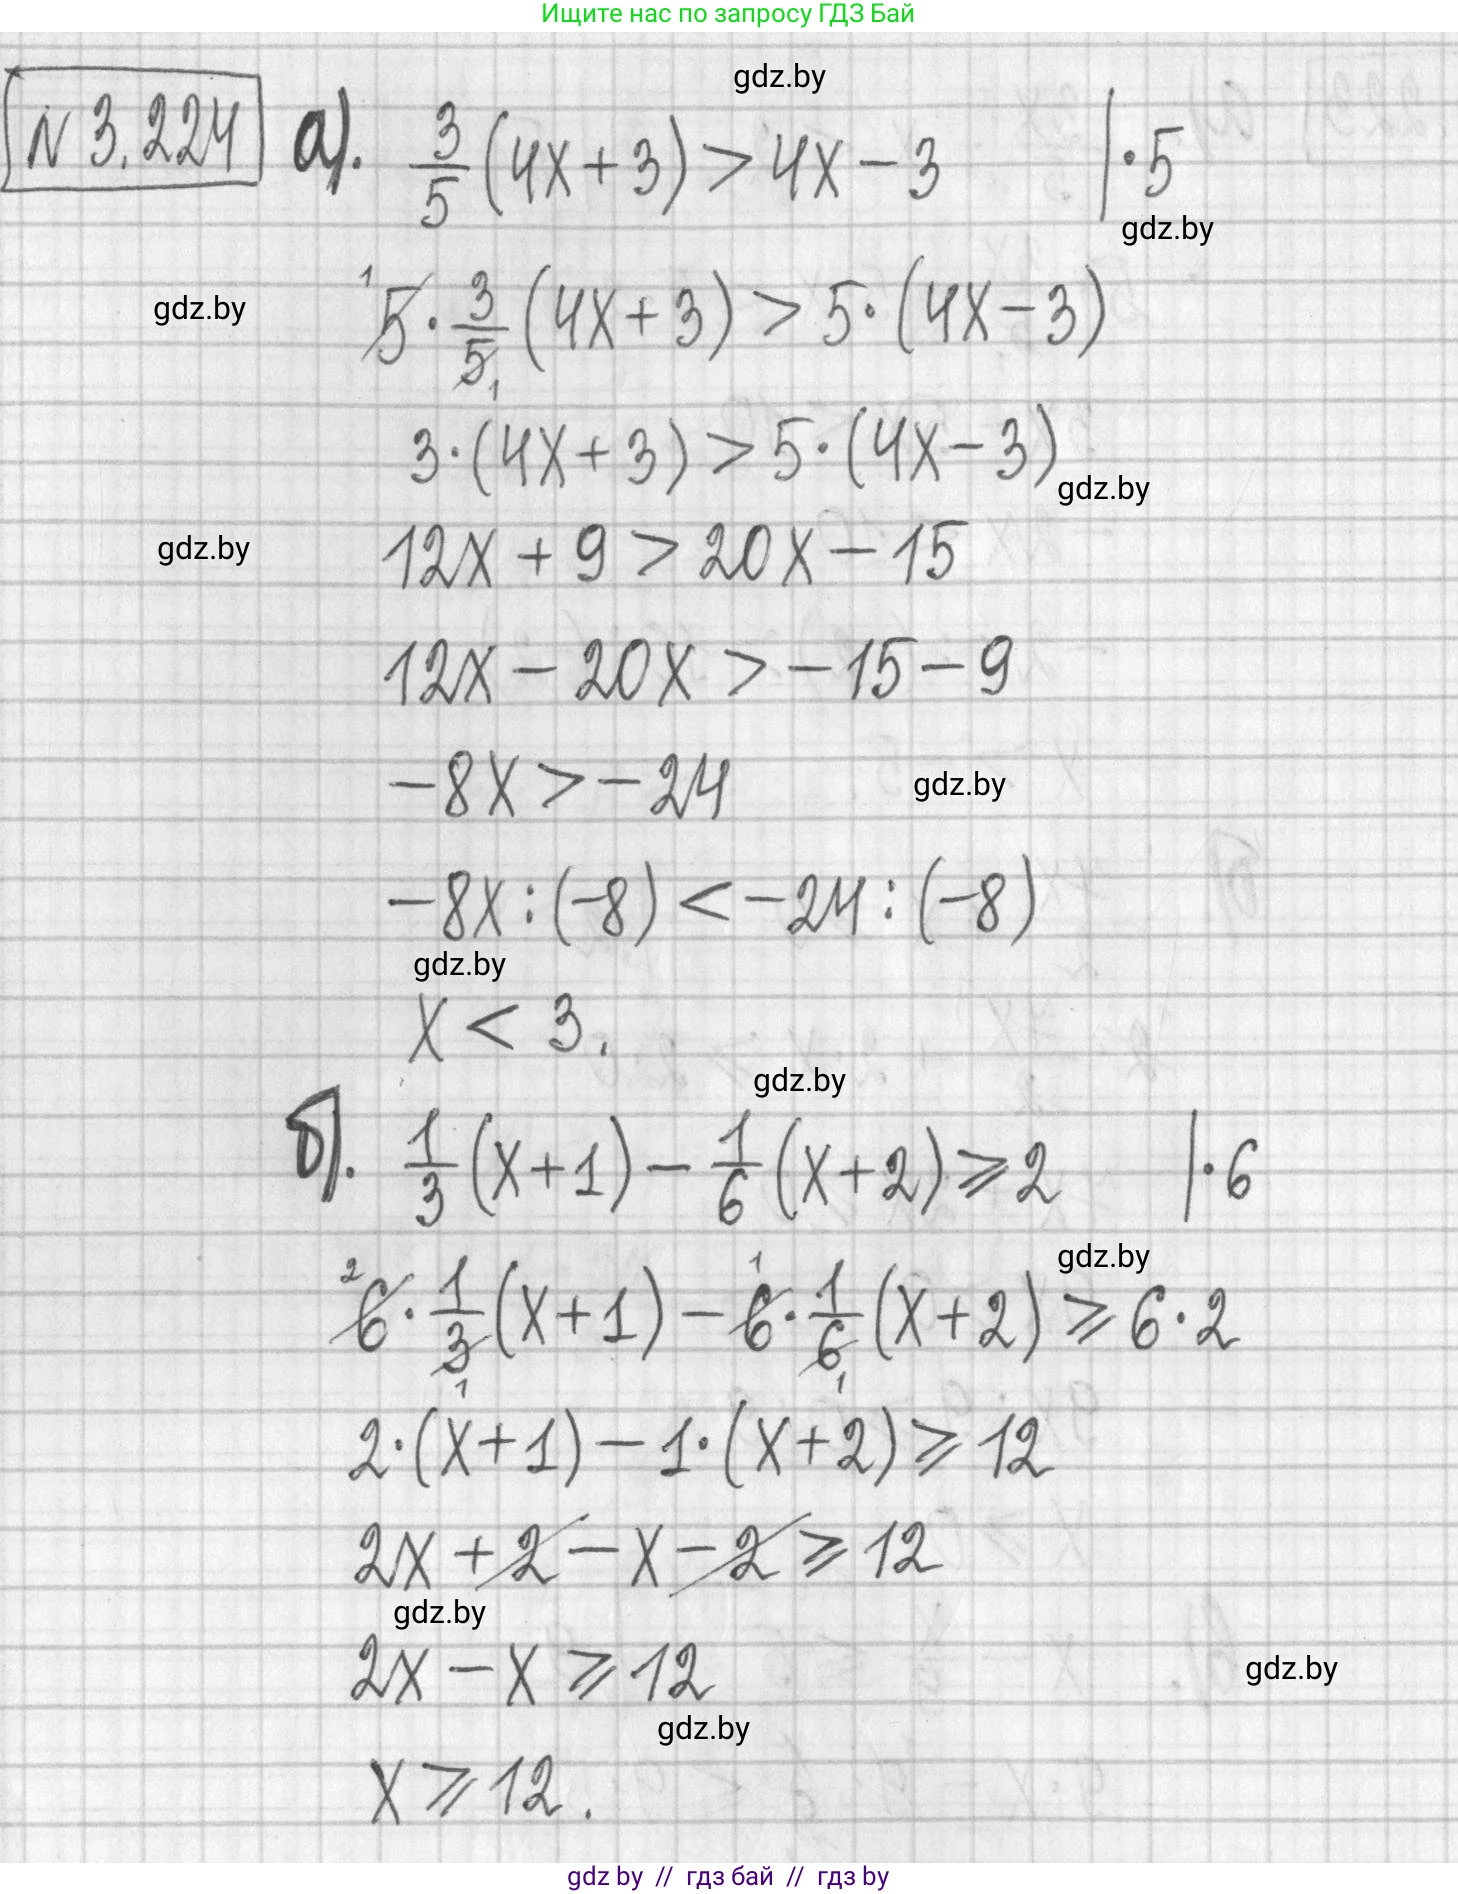 Ищите нас по запросу ГДЗ Бай
gdz.by
N 3.224 а). 3/5 (4x + 3) > 4x - 3 | · 5
gdz.by
gdz.by
¹5 · 3/5₁ (4x + 3) > 5 · (4x - 3)
3 · (4x + 3) > 5 · (4x - 3)
gdz.by
gdz.by
12x + 9 > 20x - 15
12x - 20x > -15 - 9
-8x > -24
gdz.by
-8x : (-8) < -24 : (-8)
gdz.by
x < 3.
gdz.by
б). 1/3 (x + 1) - 1/6 (x + 2) ⩾ 2 | · 6
gdz.by
²6 · 1/3₁ (x + 1) - ¹6 · 1/6₁ (x + 2) ⩾ 6 · 2
2 · (x + 1) - 1 · (x + 2) ⩾ 12
2x + 2 - x - 2 ⩾ 12
gdz.by
2x - x ⩾ 12
gdz.by
gdz.by
x ⩾ 12.
gdz by // гдз бай // гдз by